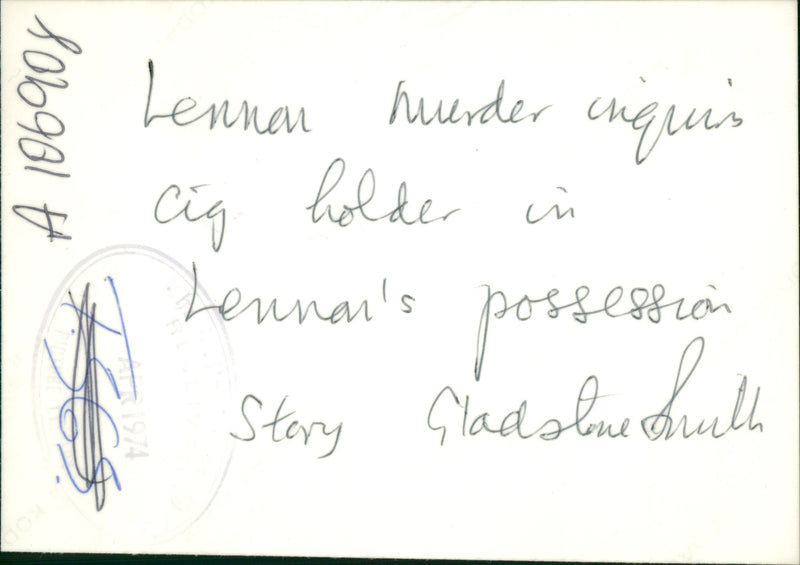 A 106908
Lennon murder inquiry
Cig holder in
Lennon's possession
Story Gladstone Smith
APR 1974